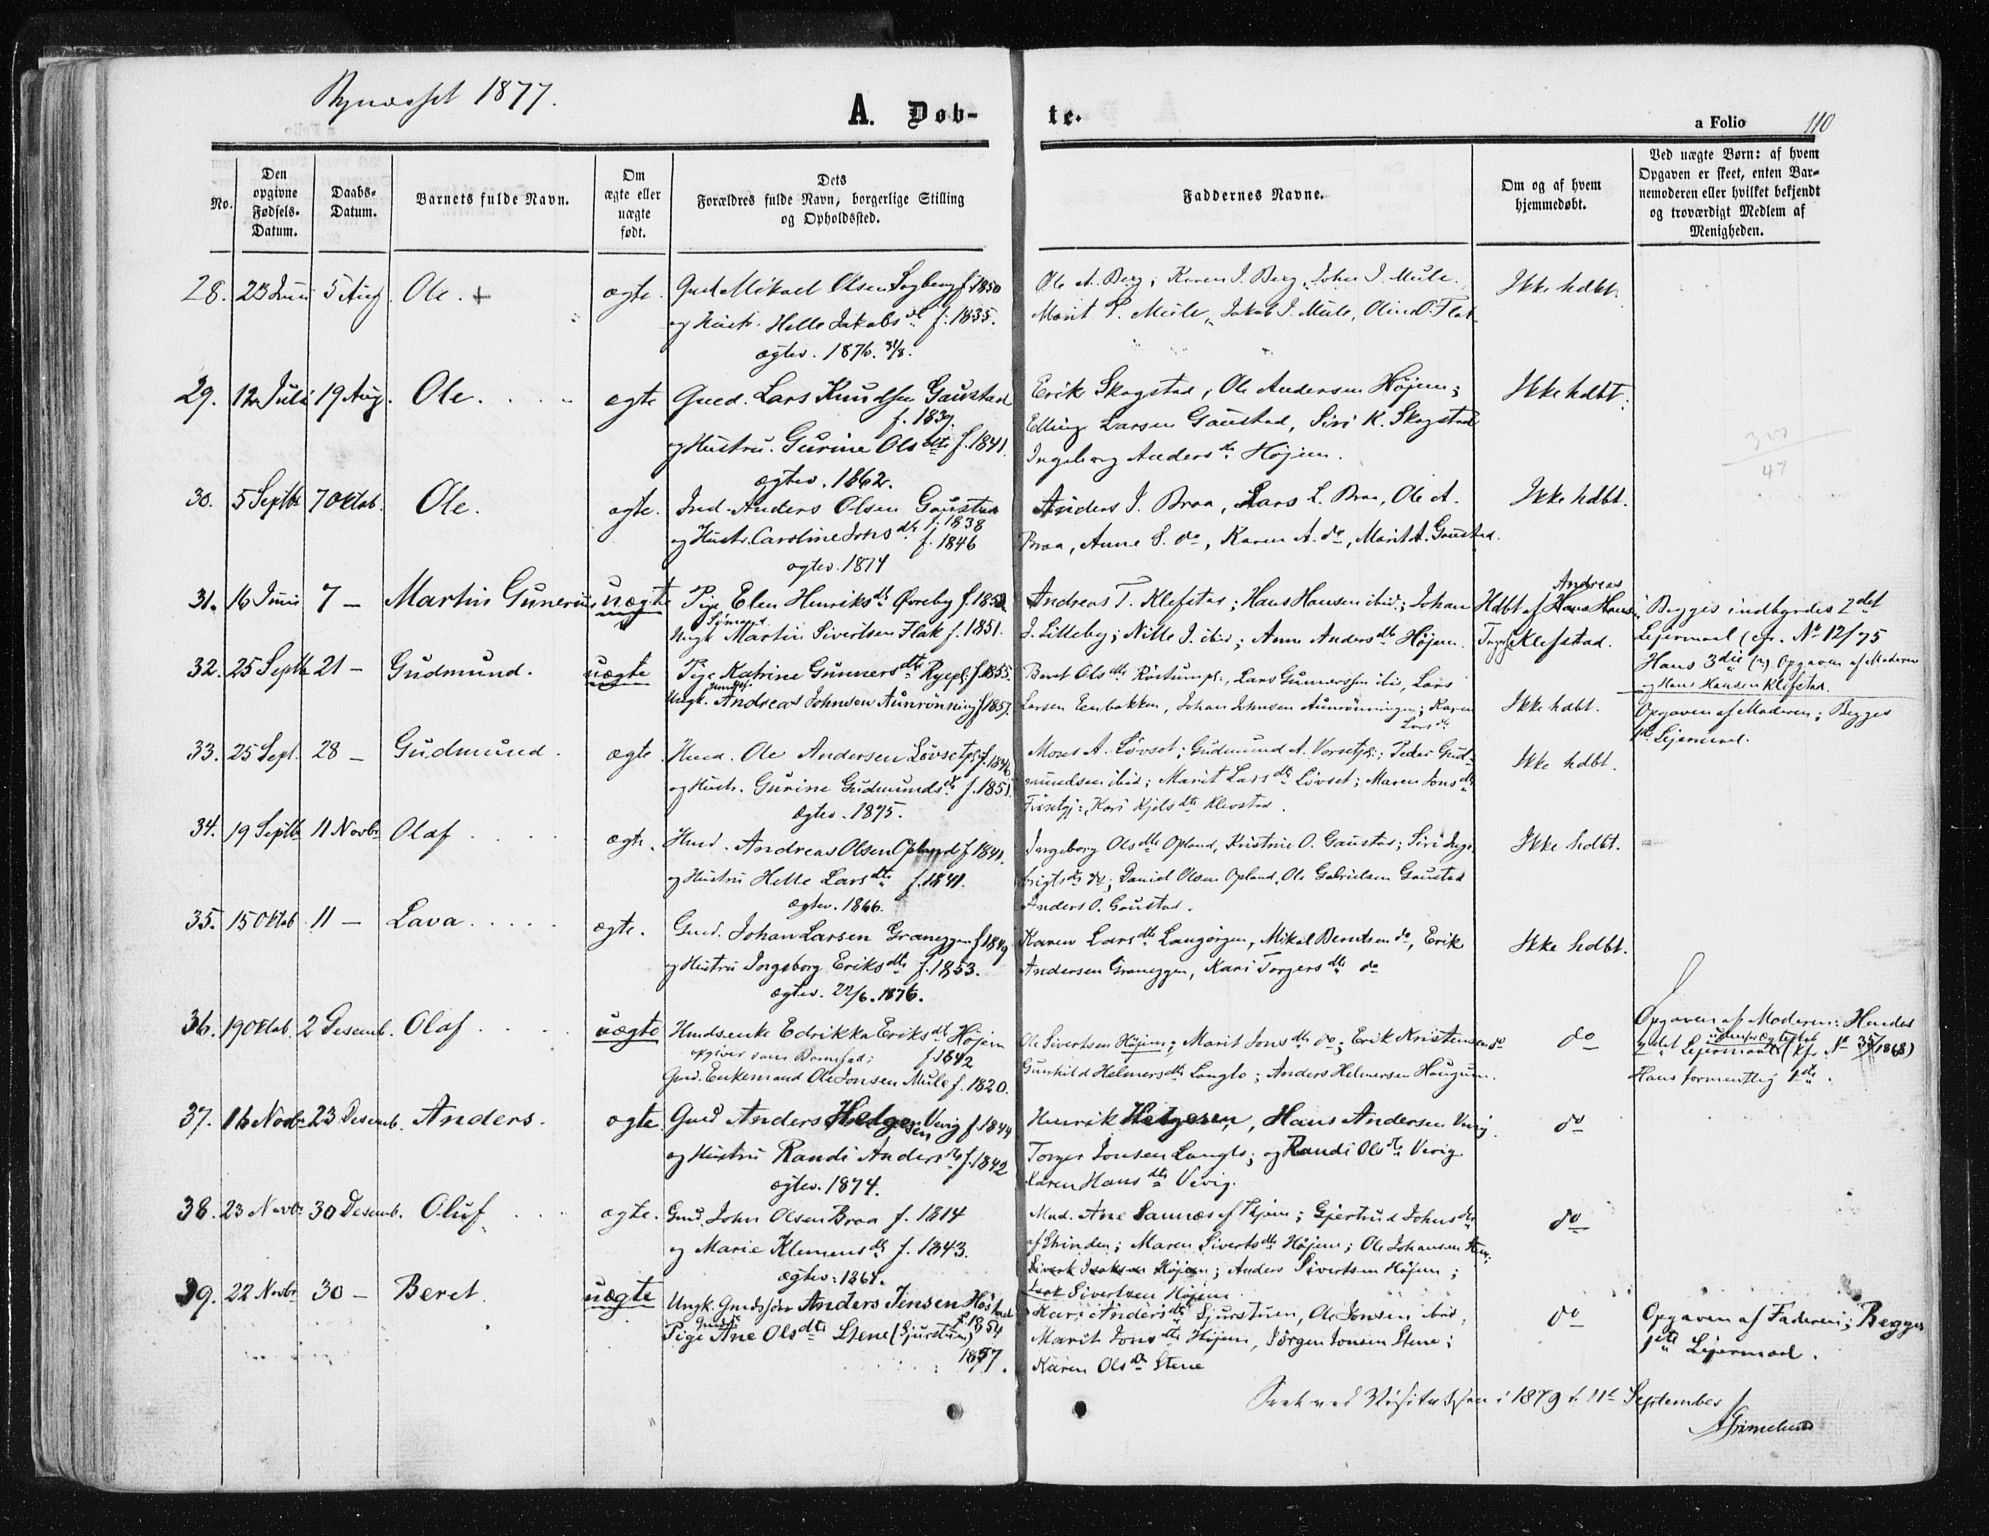 Bynæsset 1877.
A. Døb-
te.
a Folio 110
No.
Den opgivne Fødsels-Datum.
Daabs-Datum.
Barnets fulde Navn.
Om ægte eller uægte født.
Dets Forældres fulde Navn, borgerlige Stilling og Opholdssted.
Faddernes Navne.
Om og af hvem hjemmedøbt.
Ved uægte Børn: af hvem Opgaven er skeet, enten Barnemoderen eller hvilket bekjendt og troværdigt Medlem af Menigheden.
28. 23 Juni 5 Aug Ole. + ægte. Gmd Mikael Olsen f. 1850
og Hustr. Helle Jakobsdt f. 1835.
ægtev. 1876. 31/8.
Ole A. Berg; Karen J. Berg, John J. Mule
Marit L. Mule, Jakob J. Mule, Oline O. Flak
Ikke hdbt.
29. 12 Juli 19 Aug. Ole. ægte Gmd. Lars Knudsen Gaustad
f. 1839.
og Hustru. Gurine Olsdtr f. 1841.
ægtev. 1862.
Erik Skogstad, Ole Andersen Højem;
Elling Larsen Gaustad, Siri K. Skogstad
Ingeborg Andersdtr Højem.
Ikke hdbt.
30. 5 Septbr 7 Oktob. Ole. ægte. Ind. Anders Olsen Gaustad
f. 1838
og Hustr. Caroline Jonsdtr f. 1846
ægtev. 1874
Anders J. Braa, Lars L. Braa, Ole A.
Braa, Anne S. do, Karen A. do, Marit A. Gaustad.
Ikke hdbt.
31. 16 Juni 7 – Martin Gunerius uægte Pige Elen Henriksdt Øvreby f. 1852
Ungk Martin Sivertsen Flak f. 1851.
Andreas T. Klefstad; Hans Hansen ibid; Johan
J. Litleby; Nille J. ibid; Anne Andersdtr Højem.
Hdbt af Andreas Hans Hansen
Klefstad.
Begges indbyrdes 2det
Lejermaal (cfr. No 12/75
Hans 3die (?) Opgaven af Moderen
og Hans Hansen Klefstad.
32. 25 Septbr 21 – Gudmund. uægte Pige Katrine Gunnersdtr Ryepl. f. 1855.
Ungk. Andreas Johnsen Aunrønning f. 1857.
Beret Olsdtr Rostumpl., Lars Gunnersen ibid, Lars
Larsen Eenbakken, Johan Johnsen Aunrønningen; Karen
Larsdtr
Ikke hdbt.
Opgaven af Moderen; Begges
1te Lejermaal.
33. 25 Sept. 28 – Gudmund. ægte Husd. Ole Andersen Løvsetpl. f. 1846
og Hustr. Gurine Gudmundsdtr f. 1851.
ægtev. 1875.
Mons A. Løvset; Gudmund A. Vorsetpl.; Peder Gud-
mundsen ibid; Marit Larsdtr Løvset; Maren Jonsdtr
Kari Kjelsdtr Klevstad.
Ikke hdbt.
34. 19 Septbr 11 Novbr Olaf ægte. Husd. Andreas Olsen Opland f. 1841.
og Hustru Helle Larsdtr f. 1841.
ægtev. 1866.
Ingeborg Olsdtr Opland, Kristine O. Gaustad; Siri Inge-
brigtsdtr do; Daniel Olsen Opland, Ole Gabrielsen Gaustad
Anders O. Gaustad.
Ikke hdbt.
35. 15 Oktob 11 – Lava ægte. Gmd. Johan Larsen Graneggen f. 1849
og Hustru Ingeborg Eriksdtr f. 1853.
ægtev. 22/6. 1876.
Karen Larsdtr Langørgen, Mikal Berntsen do, Erik
Andersen Graneggen, Kari Torgersdtr do
Ikke hdbt.
36. 19 Oktob. 2 Desemb. Olaf uægte Husd. enke Edrikka Eriksdt Højem
opgiver som Barnefad: f. 1842
Gmd. Enkemand Ole Jonsen Mule f. 1820.
Ole Sivertsen Højem; Marit Jonsdtr do; Erik Kristensen do
Gunhild Helmersdtr Langlo; Anders Helmersen Haugum.
do
Opgaven af Moderen: Hendes
2det Lejermaal (kfr. No 35/1868)
Hans formentlig 1ste.
37. 16 Novbr 23 Desemb. Anders. ægte Gmd Anders Helgesen Vevig f. 1844
og Hustru Randi Andersdtr f. 1842
ægtev. 1874.
Henrik Helgesen, Hans Andersen Vevig.
Torger Jonsen Langlo; og Randi Olsdtr Vevig
Karen Hansdtr Vevig.
do
38. 23 Novbr 30 Desemb. Oluf. ægte. Gmd. John Olsen Braa f. 1814
og Marie Klemensdtr f. 1843.
ægtev: 1864.
Mad. Ane Sannes af Thjem; Gjertrud Johnsdtr
af Strinden; Maren Sivertsdtr Højem; Ole Johansen
Sivert Isaksen Højem; Anders Sivertsen Højem;
Isak Sivertsen Højem.
do
39. 22 Novbr 30 – Beret. uægte Ungk. Gmdssøn Anders Jensen
f. 1854
Pige Ane Olsdtr Stene (Gjurstuen)
1857.
Kari Andersdtr Gjurstuen, Ole Jonsen ibid;
Marit Jonsdtr Højem, Jørgen Jonsen Stene;
Karen Olsdtr Stene
do
Opgaven af Faderen; Begges
1ste Lejermaal.
Seet ved Visitatsen i 1879 d. 11te September
AGrimelund